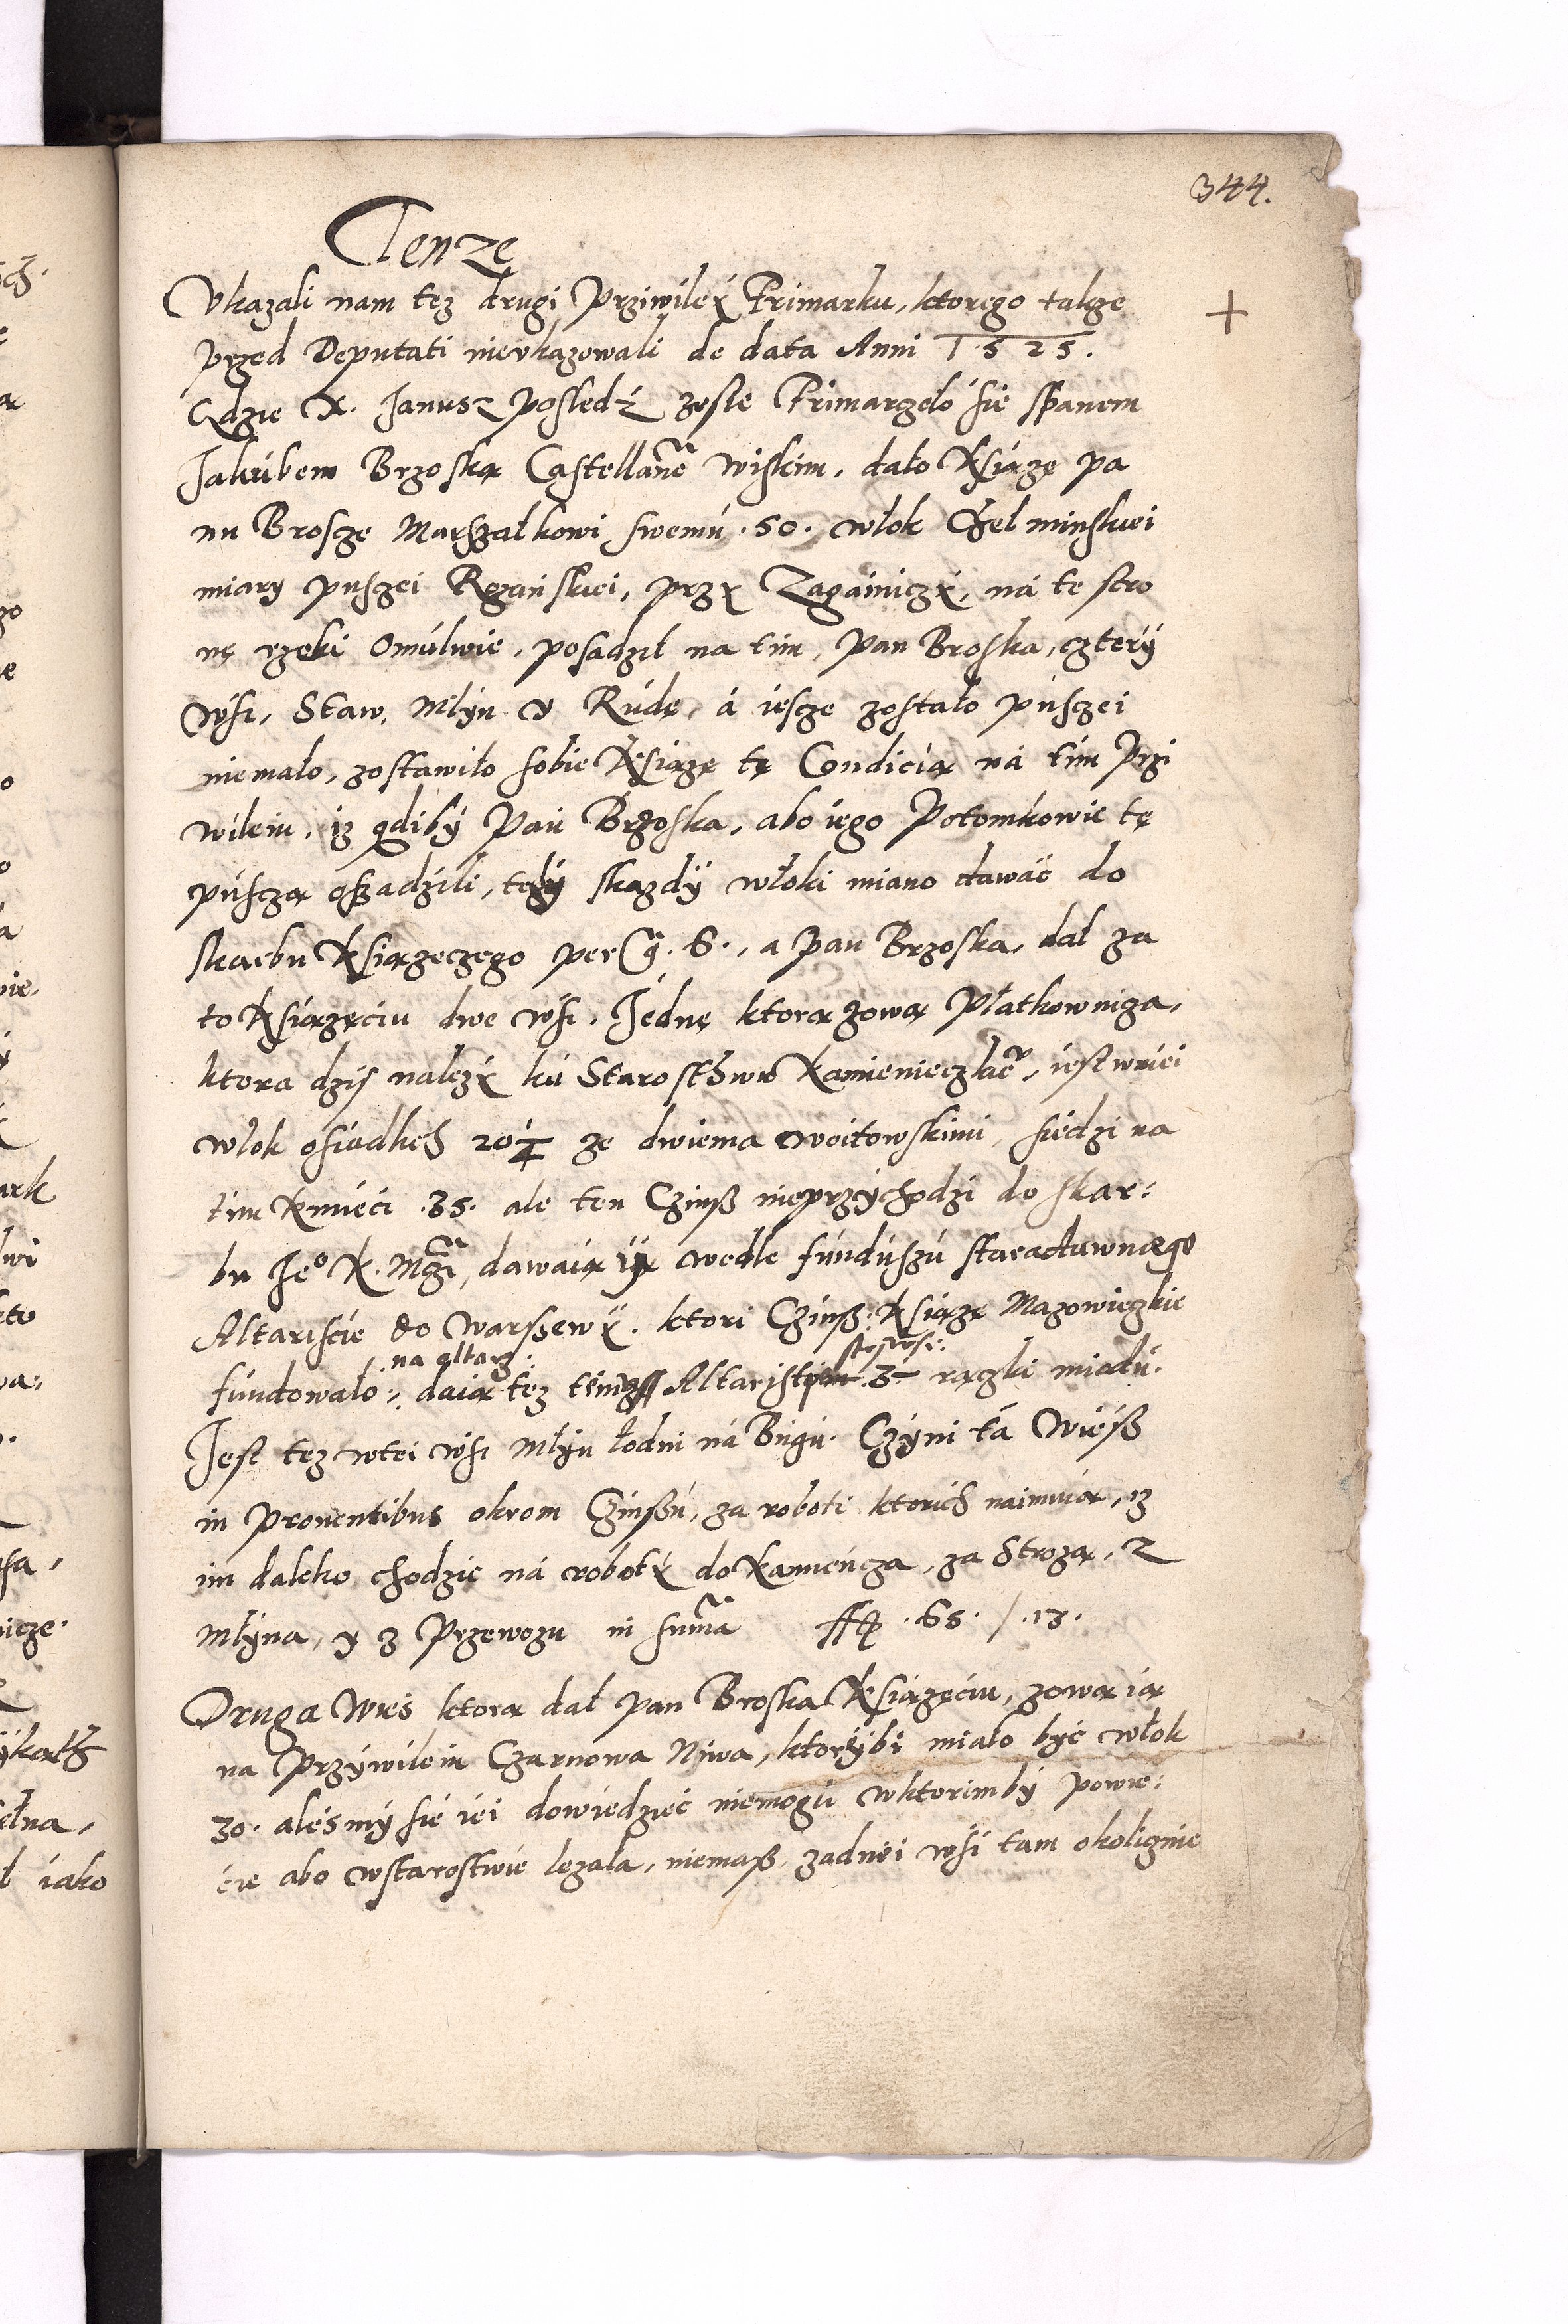 344.
Tenze
Vkazali nam tez drugi Prziwileÿ Frimarku, ktorego takze
przed Deputati nievkazowali de data Anni 1525.
Gdzie X. Janusz posledź. zesle Frimarzeło sie spanem
Jakubem Brzoską Castellanē wiskim, dało Xsiązę pa
nu Brosze Marszałkowi swemu .50. włok Chełminskiei
miary puszei Rozanskiei, przÿ Zagainiczÿ, ná te stro
nę rzeki Omulwie, posadził na tim, pan Broska, czterÿ
wsi, Staw, Młÿn y Rudę, á iesze zostało puszei
niemało, zostawiło sobie Xsiązę tę Condicią ná tim Przi
wileiu, iz gdibÿ Pan Brzoska, abo iego Potomkowie tę
puszą osadzili, tedÿ skazdÿ włoki miano dawać do
skarbu Xsiązeczego per gʳ. 6., a Pan Brzoska, dał za
to Xsiązęciu dwe wsi. Jednę ktorą zową Płatkowniza,
ktora dzis nalezÿ ku Starosthwu Kamienieczkiē, iest wniei
włok osiadłich 20 1/4 ze dwiema woitowskimi, siedzi na
tim Kmieci .35. ale ten Czinß nieprzÿchodzi do skar:
bu Jeº K. Mczi, dawaią iÿ wedle funduszu staradawnego
Altariscie do Warszewÿ. ktori Czinß Xsiązę Mazowieczkie
na ołtarz:
fundowało:, daią tez temusz Altariście 3 rączki miodu.
Jest tez wtei wsi Młÿn łodni ná Bugu. Czÿni tá Wieß
in Prouentibus okrom Czinßu, za roboti ktorich naimuią, iz
im daleko chodzic ná robotÿ do Kamiencza, za Strozą, Z
Młÿna, y z Przewozu in suma ff .65. / .13.
Druga Wies ktorą dał pan Broska Xsiązęciu, zową ią
na Prziwileiu Czarnowa Niwa, ktorÿbi miało byc włok
30. alesmÿ sie iei dowiedziec niemogli wktorimbÿ powie:
cie abo wstarostwie lezała, niemaß zadnei wsi tam okolicznie